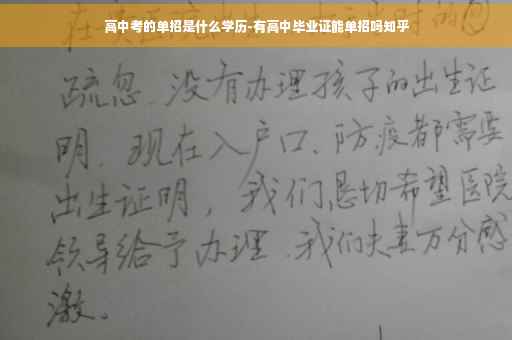 高中考的单招是什么学历-有高中毕业证能单招吗知乎
疏忽、没有办理孩子的出生证
明、现在入户口、防疫都需要
出生证明，我们恳切希望医院
领导给予办理、我们夫妻万分感
激。